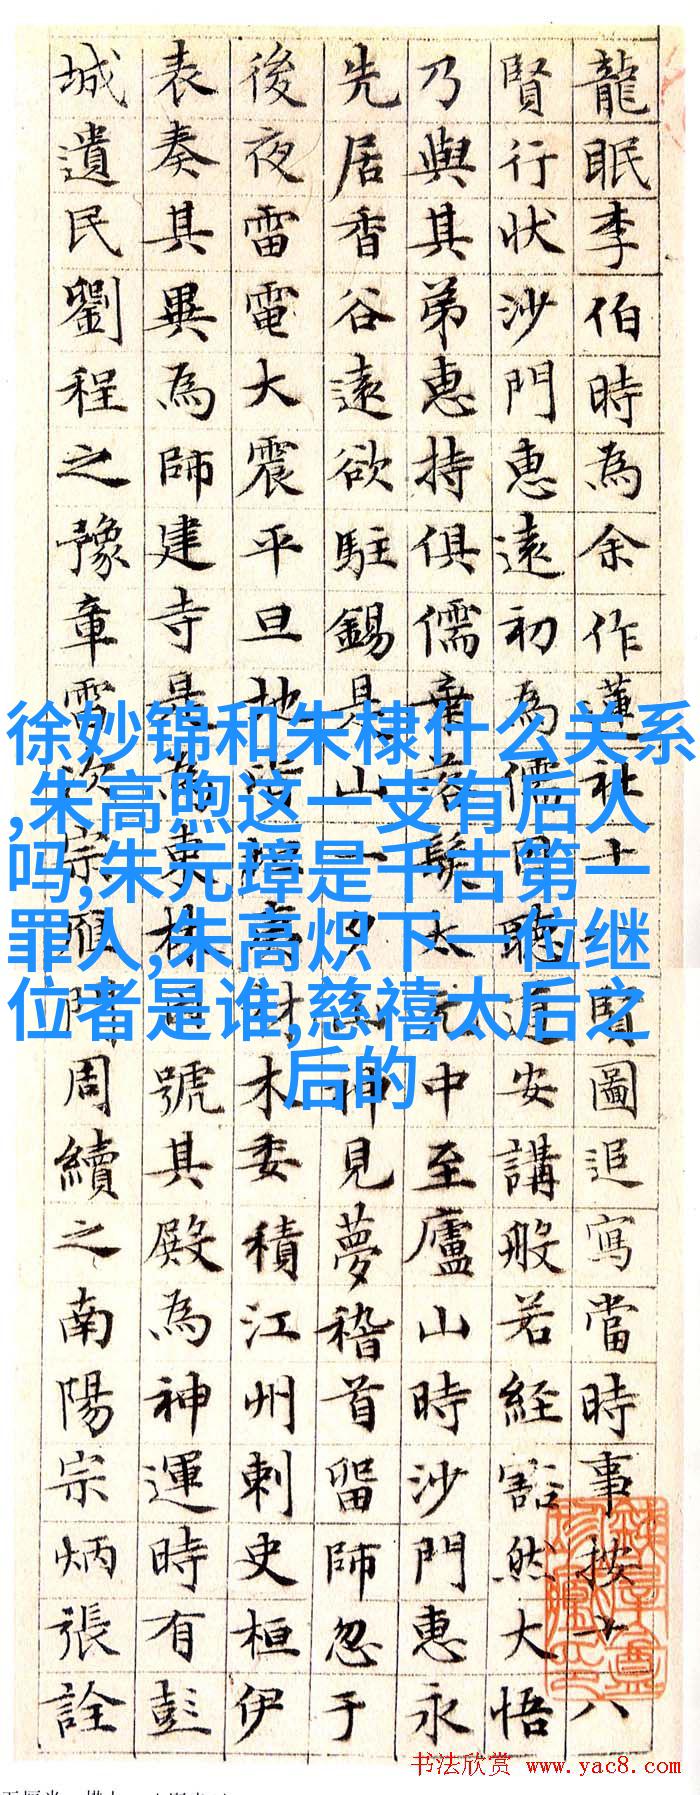 龍眠李伯時為余作蓮社十賢圖追寫當時事按十八
賢行狀沙門惠遠初為儒因聽道安講般若經豁然大悟
乃與其弟惠持俱儒棄落髮太元中至廬山時沙門惠永
先居香谷遠欲駐錫是山一夕山神見夢稽首留師忽于
後夜雷電大震平旦地材木委積江州刺史桓伊
表奏其異為師建寺是為東林號其殿為神運時有彭
城遺民劉程之豫章雷次宗雁門周續之南陽宗炳張詮
徐妙锦和朱棣什么关系
,朱高煦这一支有后人
吗,朱元璋是千古第一
罪人,朱高炽下一位继
位者是谁,慈禧太后之
后的
书法欣赏 www.yac8.com